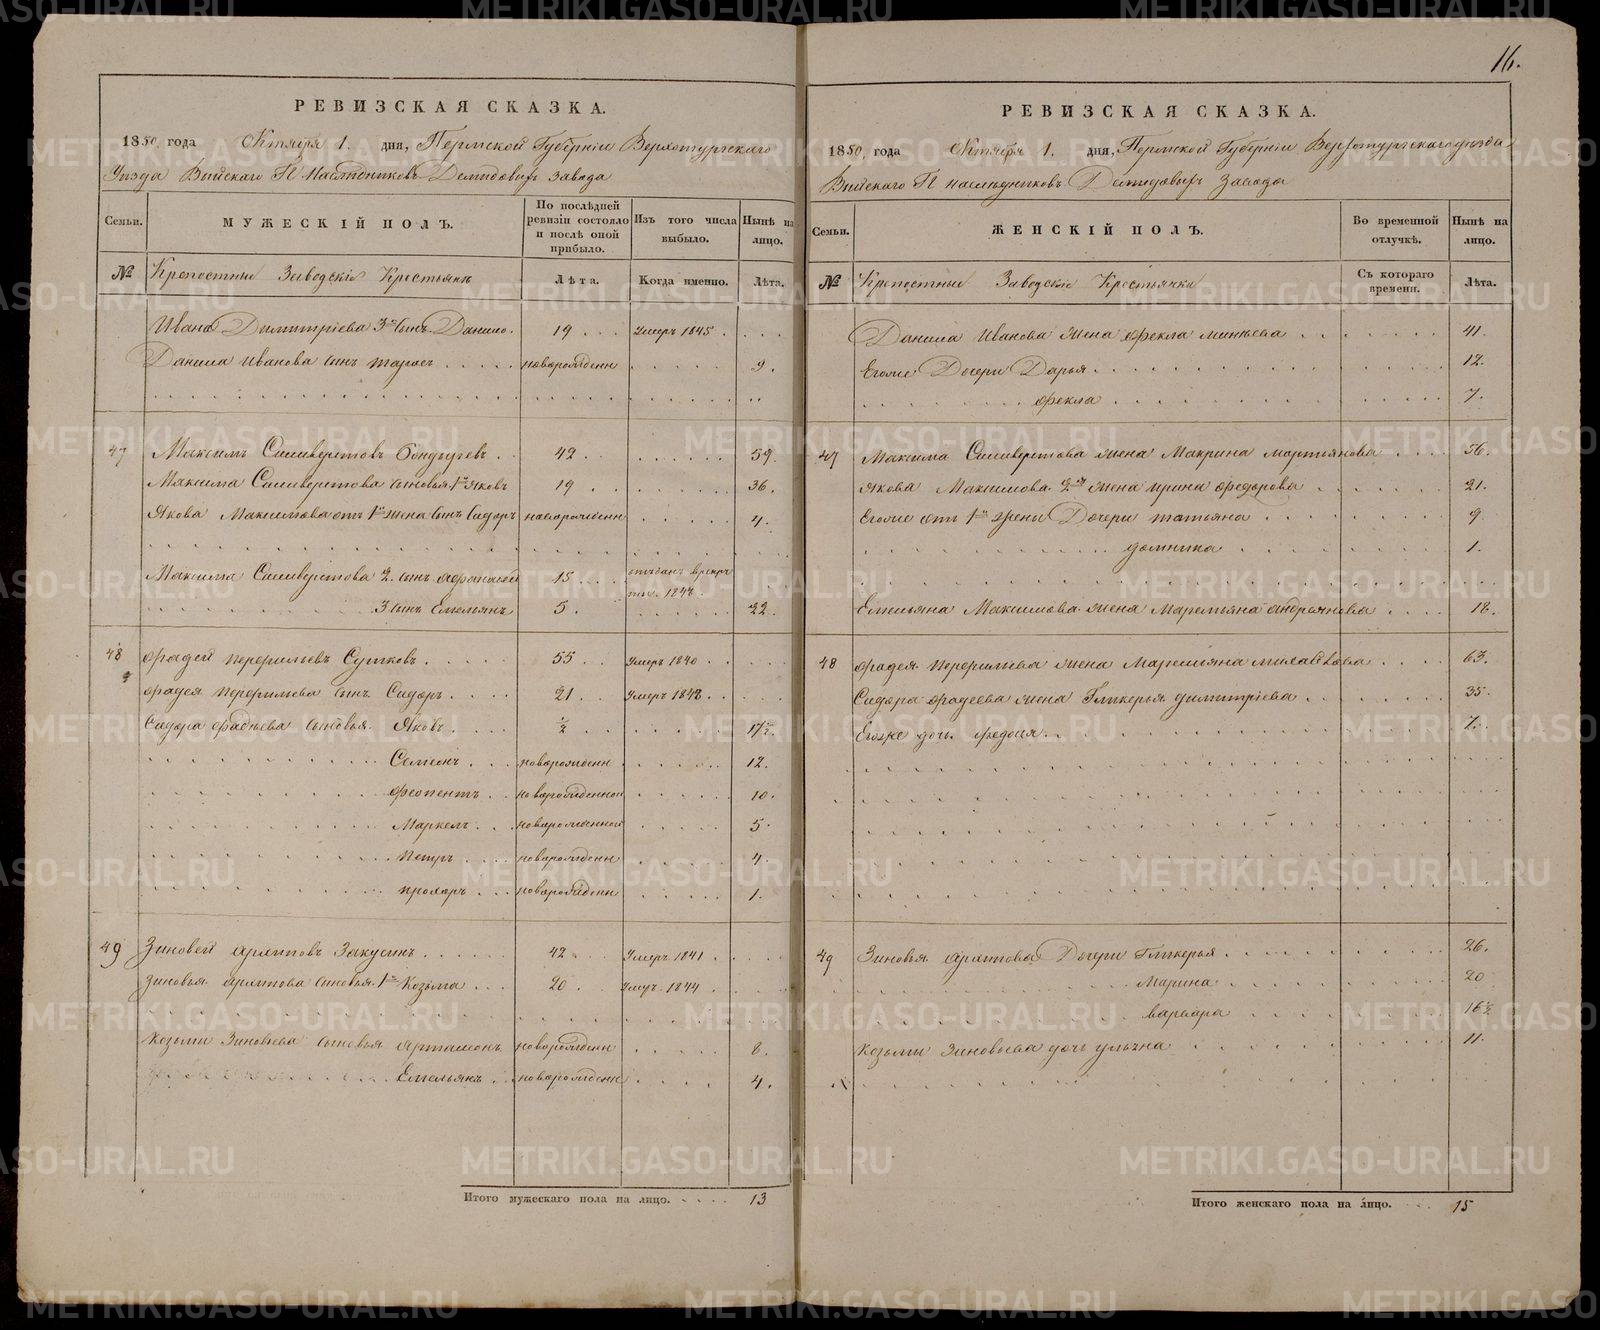 16.
РЕВИЗСКАЯ СКАЗКА.
1850 года Октября 1. дня, Пермской Губерніи Верхотурскаго
Уѣзда Выйскаго Г.г. Наслѣдниковъ Демидовыхъ завода
Семьи. МУЖЕСКІЙ ПОЛЪ. По послѣдней ревизіи состояло и послѣ оной прибыло. Изъ того числа выбыло. Нынѣ на лицо.
№ Крепостные Заводскіе Крестьяне Лѣта. Когда именно. Лѣта.
Ивана Димитріева 3й сынъ Данило. 19 Умеръ 1845
Данила Иванова сынъ Тарасъ новорожденн 9.
47 Максимъ Силиверстовъ 42 59.
Максима Силиверстова сыновья 1й Яковъ 19 36.
Якова Максимова отъ 1й жены сынъ Сидоръ новорожденн 4.
Максима Силиверстова 2. сынъ Афанасей 15 1847
3 сынъ Емельянъ 5. 22.
48 Фадей Перфильевъ Сутковъ 55 Умеръ 1840
Фадея Перфильева сынъ Сидоръ 21 Умеръ 1848
Сидора Фадѣева сыновья Яковъ ½ 17½
Семенъ новорожденн 12.
Феопентъ новорожденной 10.
Маркелъ новорожденной 5.
Петръ новорожденн 4.
Прохоръ новорожденн 1.
49 Зиновей Архиповъ Закусинъ 42 Умеръ 1841
Зиновья Архипова сыновья 1й Козьма 20 Умеръ 1844
Козьмы Зиновьева сыновья Артамонъ новорожденн 8.
Емельянъ новорожденн 4.
Итого мужескаго пола на лицо. 13
РЕВИЗСКАЯ СКАЗКА.
1850 года Октября 1. дня, Пермской Губерніи Верхотурскаго уѣзда
Выйскаго Г.г. наслѣдниковъ Демидовыхъ завода
Семьи. ЖЕНСКІЙ ПОЛЪ. Во временной отлучкѣ. Нынѣ на лицо.
№ Крепостные Заводскіе Крестьянки Съ котораго времени. Лѣта.
Данила Иванова жена Фекла Минѣева 41.
Егоже Дочери Дарья 12.
Фекла 7.
47 Максима Силиверстова жена Макрина Мартьянова 56.
Якова Максимова 2я жена Ирина Федорова 21.
Егоже отъ 1й жены Дочери Татьяна 9
Домника 1.
Емельяна Максимова жена Маремьяна Андреянова 18.
48 Фадея Перфильева жена Маремьяна 63.
Сидора Фадеева жена Гликерья Димитріева 35.
Егоже дочь Федосия 7.
49 Зиновья Архипова Дочери Гликерья 26.
Марина 20
Варвара 16½
Козьмы Зиновьева дочь Ульяна 11.
Итого женскаго пола на лицо. 15
METRIKI.GASO-URAL.RU